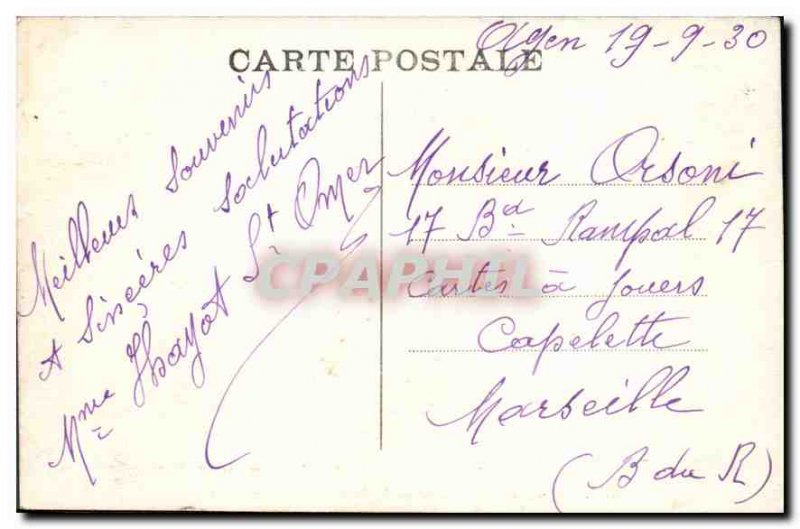 CARTE POSTALE
Agen 19-9-30
Meilleurs Souvenirs
et Sincères Salutations
Mme Thayot St Omer
Monsieur Orsoni
17 Bd Rampal 17
Cartes à Jouers
Capelette
Marseille
(B du R)
CPAPHIL